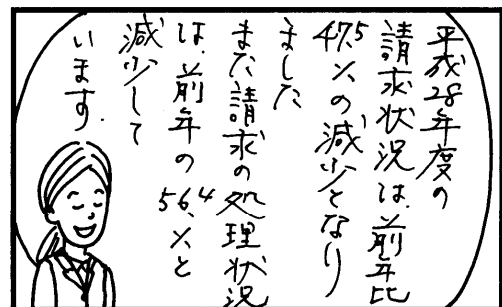 平成28年度の
請求状況は、前年比
47.5%の減少となり
ました
また請求の処理状況
は、前年の56.4%と
減少して
います.